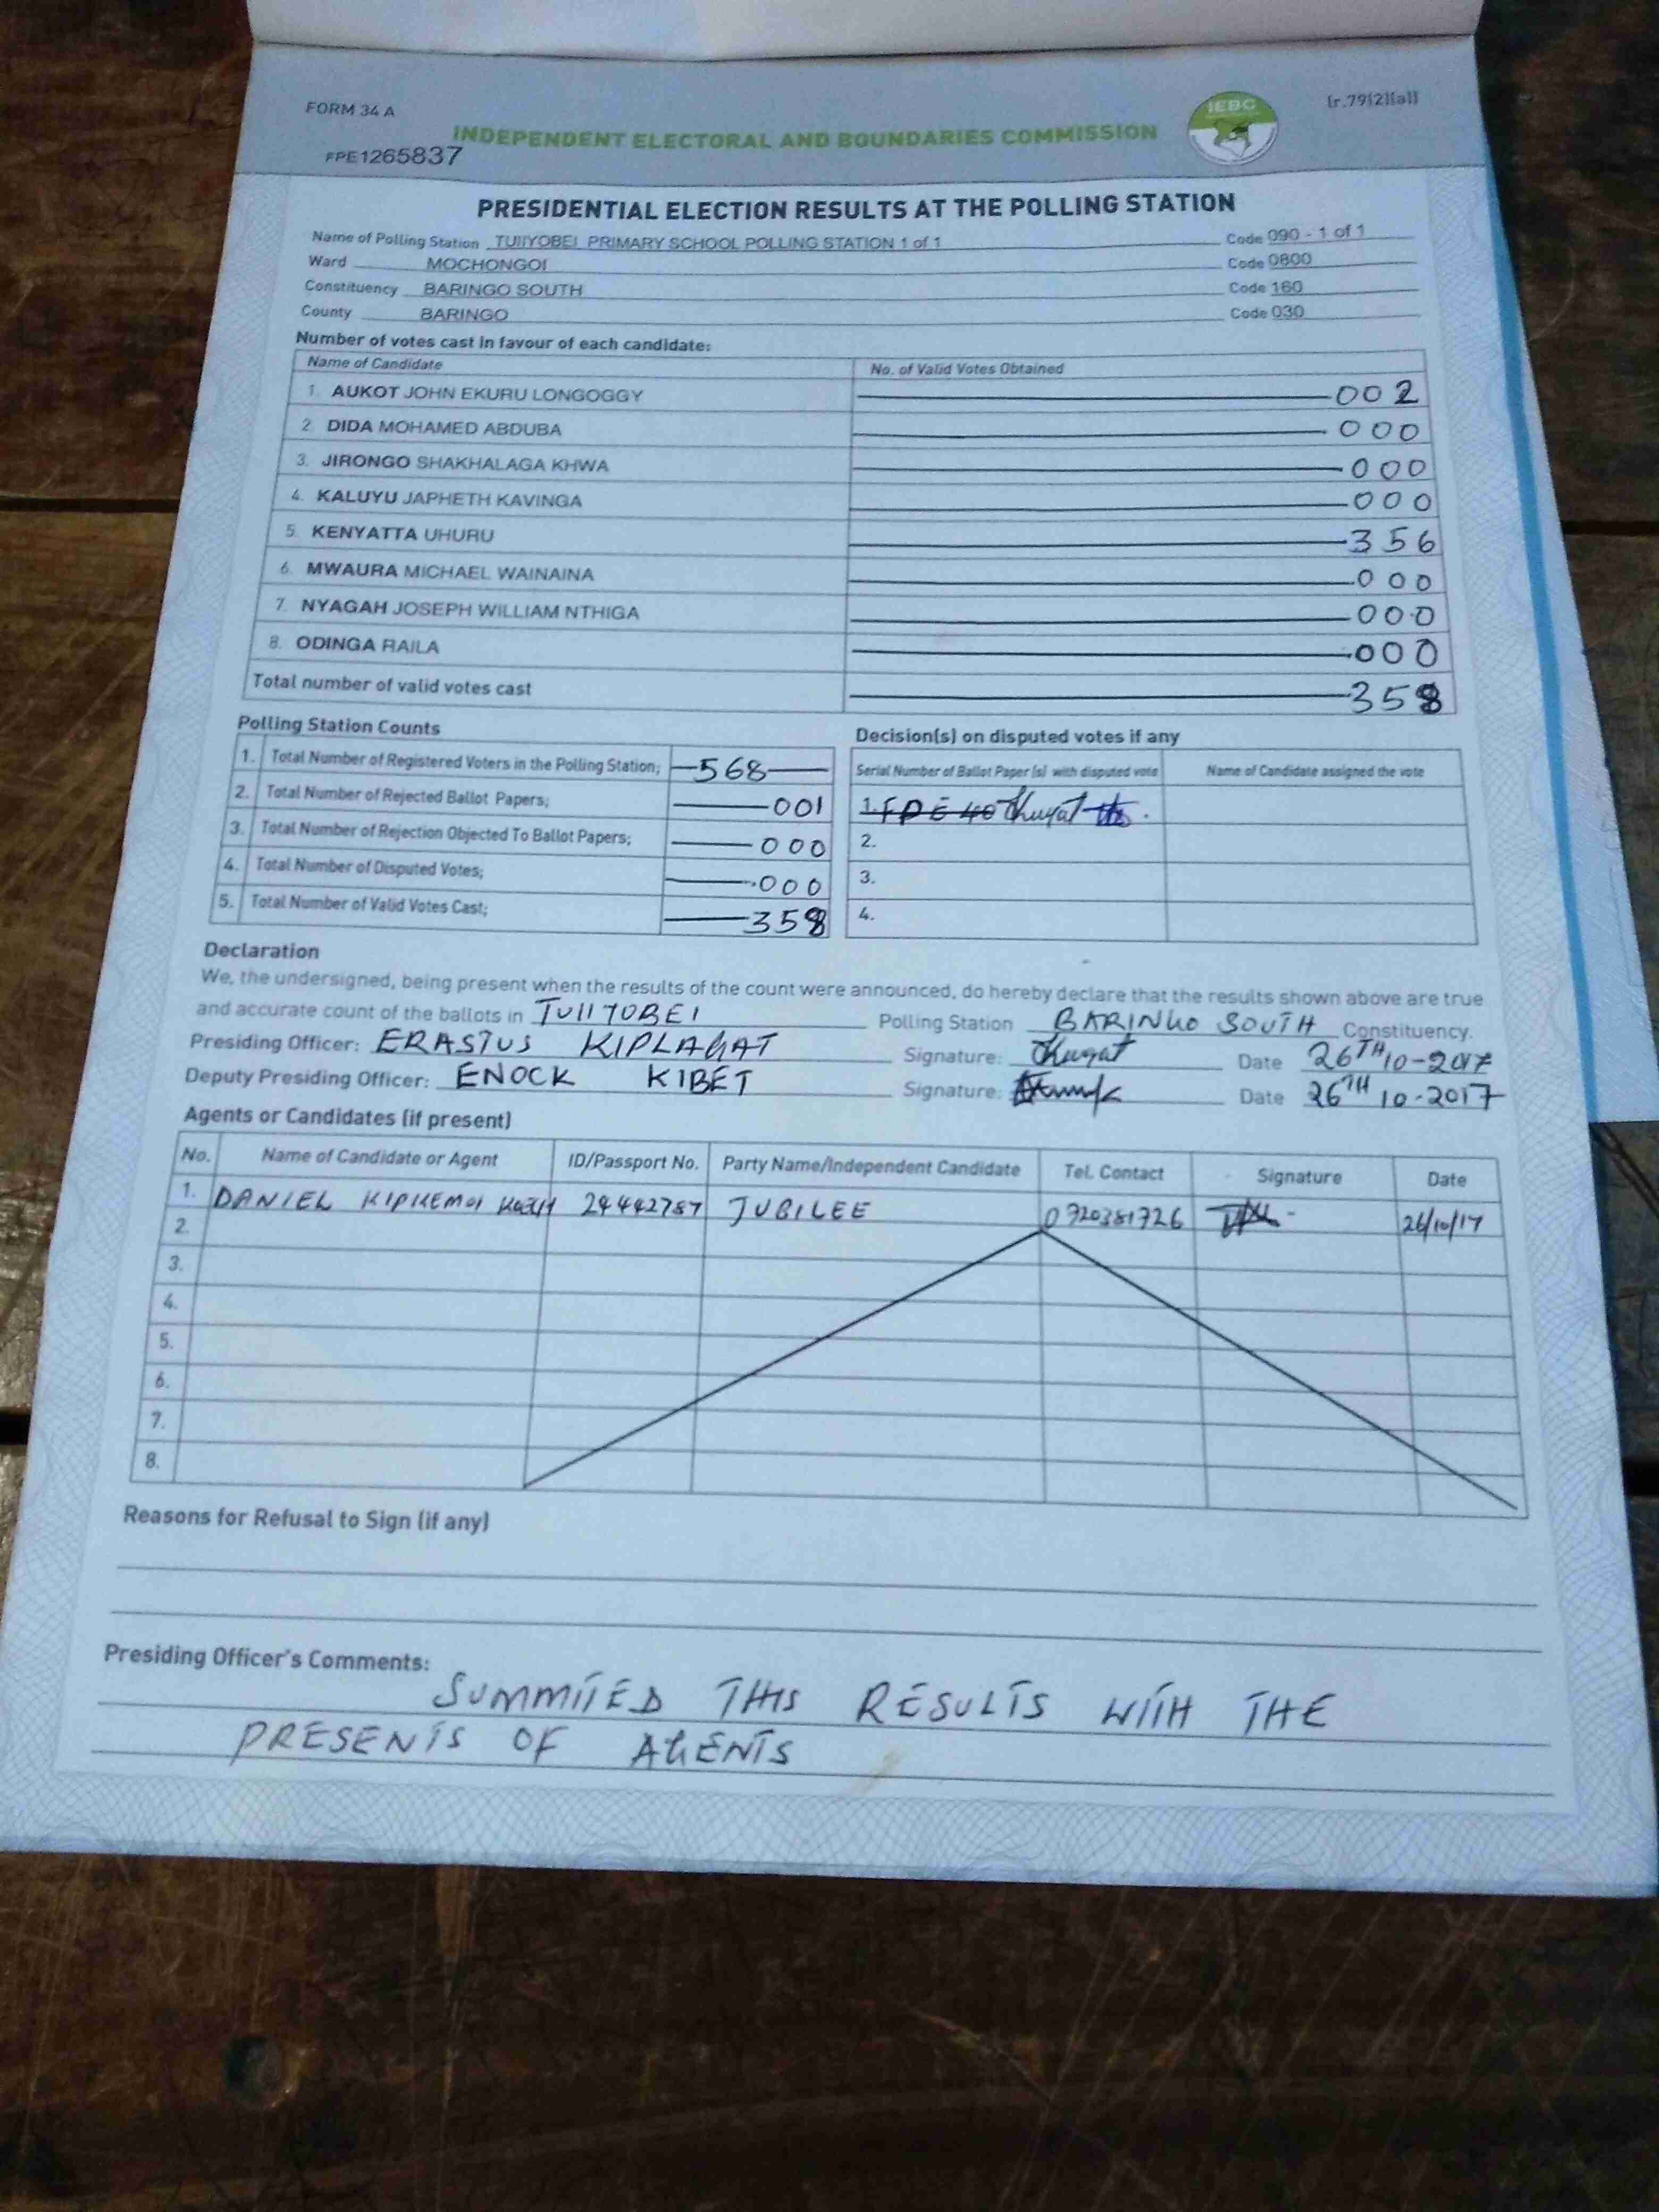 FORM 34 A
IEBC
(r.79(2)(a))
INDEPENDENT ELECTORAL AND BOUNDARIES COMMISSION
FPE1265837
PRESIDENTIAL ELECTION RESULTS AT THE POLLING STATION
Name of Polling Station TUIIYOBEI PRIMARY SCHOOL POLLING STATION 1 of 1 Code 090 - 1 of 1
Ward MOCHONGOI Code 0800
Constituency BARINGO SOUTH Code 160
County BARINGO Code 030
Number of votes cast in favour of each candidate:
Name of Candidate No. of Valid Votes Obtained
1. AUKOT JOHN EKURU LONGOGGY 002
2. DIDA MOHAMED ABDUBA 000
3. JIRONGO SHAKHALAGA KHWA 000
4. KALUYU JAPHETH KAVINGA 000
5. KENYATTA UHURU 356
6. MWAURA MICHAEL WAINAINA 000
7. NYAGAH JOSEPH WILLIAM NTHIGA 000
8. ODINGA RAILA 000
Total number of valid votes cast 358
Polling Station Counts
1. Total Number of Registered Voters in the Polling Station; 568
2. Total Number of Rejected Ballot Papers; 001
3. Total Number of Rejection Objected To Ballot Papers; 000
4. Total Number of Disputed Votes; 000
5. Total Number of Valid Votes Cast; 358
Decision(s) on disputed votes if any
Serial Number of Ballot Paper (s) with disputed vote Name of Candidate assigned the vote
1.
2.
3.
4.
Declaration
We, the undersigned, being present when the results of the count were announced, do hereby declare that the results shown above are true
and accurate count of the ballots in TUIIYOBEI Polling Station BARINGO SOUTH Constituency.
Presiding Officer: ERASTUS KIPLAGAT Signature: Date 26TH 10-2017
Deputy Presiding Officer: ENOCK KIBET Signature: Date 26TH 10-2017
Agents or Candidates (if present)
No. Name of Candidate or Agent ID/Passport No. Party Name/Independent Candidate Tel. Contact Signature Date
1. DANIEL KIPKEMOI 24442787 JUBILEE 0720381726 26/10/17
2.
3.
4.
5.
6.
7.
8.
Reasons for Refusal to Sign (if any)
Presiding Officer's Comments:
SUMMITED THIS RESULTS WITH THE
PRESENTS OF AGENTS